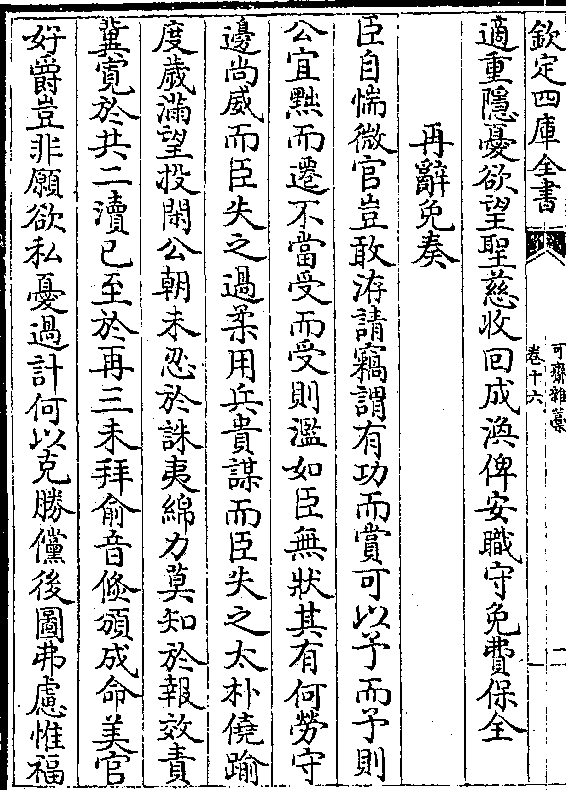 欽定四庫全書
可齋雜藁
卷十六
一
適重隱憂欲望聖慈收回成渙俾安職守免費保全
再辭免奏
臣自惴微官豈敢洊請竊謂有功而賞可以予而予則
公宜黜而遷不當受而受則濫如臣無狀其有何勞守
邊尚威而臣失之過柔用兵貴謀而臣失之太朴僥踰
度歲滿望投閑公朝未忍於誅夷綿力莫知於報效責
冀寛於共二瀆已至於再三未拜俞音倐頒成命美官
好爵豈非願欲私憂過計何以克勝儻後圖弗慮惟福